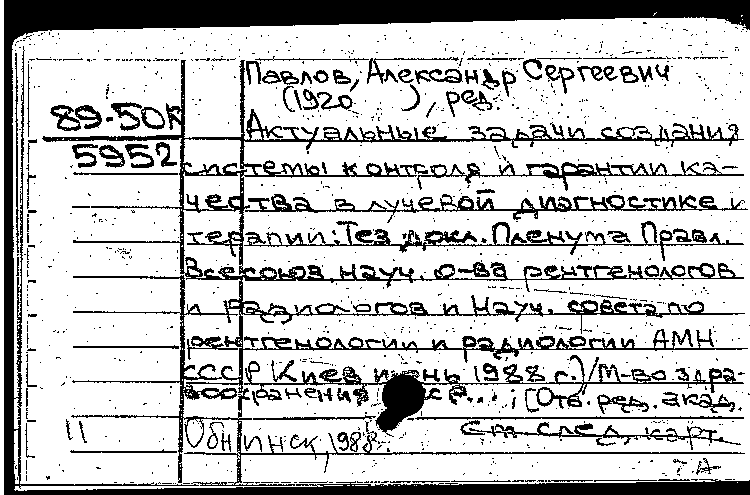 Павлов, Александр Сергеевич
(1920 ), ред.
89-50К
Актуальные задачи создания
5952
системы контроля и гарантии ка-
чества в лучевой диагностике и
терапии: Тез. докл. Пленума Правл.
Всесоюз. науч. о-ва рентгенологов
и радиологов и Науч. совета по
рентгенологии и радиологии АМН
СССР (Киев июнь 1988 г.) / М-во здра-
воохранения СССР...; [Отв. ред. акад.
11
Обнинск, 1988.
См. след. карт.
ТА